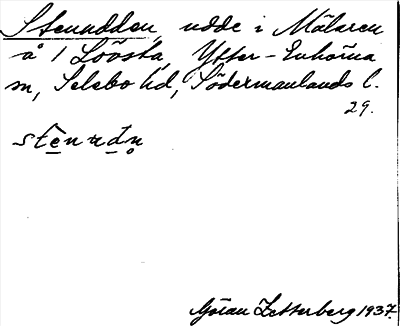 Stenudden, udde i Mälaren
å 1 Lövsta, Ytter-Enhörna
sn, Selebo hd, Södermanlands l.
29.
stenudn
Göran Zetterberg 1937.